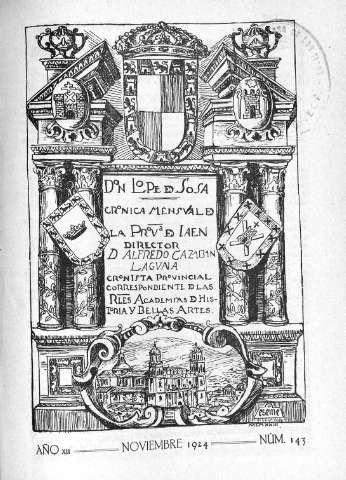 DON LOPE D SOSA
CRÓNICA MENSVAL D
LA PROVª D IAEN
DIRECTOR
D ALFREDO CAZABAN
LAGUNA
CRONISTA PROVINCIAL
CORRESPONDIENTE D LAS
RLES ACADEMIAS D HIS-
TORIA Y BELLAS ARTES.
AÑO XII NOVIEMBRE 1924 NÚM. 143